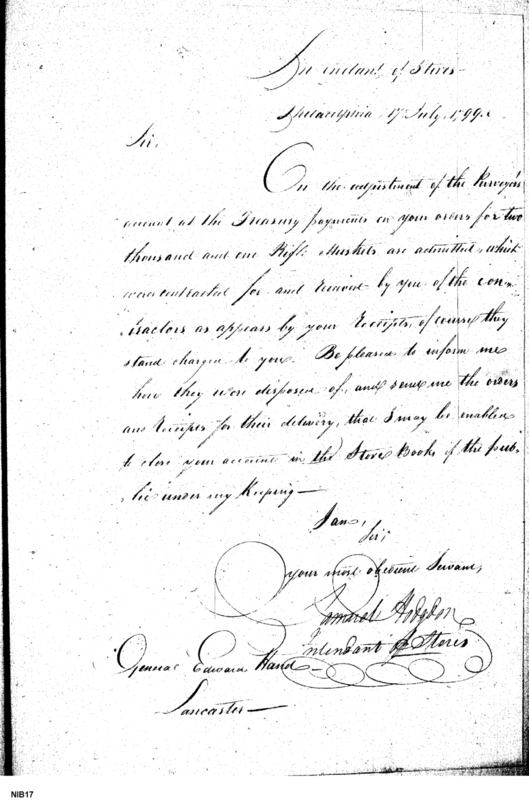 Intendant of Stores
Philadelphia 17 July, 1799.
Sir,
On the adjustment of the Purveyors
account at the Treasury payments on your orders for two
thousand and one Rifle Muskets are admitted, which
were contracted for and Received by you of the con-
tractors as appears by your Receipts, of course they
stand charged to you. Be pleased to inform me
how they were disposed of, and send me the orders
and Receipts for their delivery, that I may be enabled
to close your account in the Store Books of the pub-
lic under my Keeping—
I am,
Sir,
your most obedient Servant,
Samuel Hodgdon
Intendant of Stores
General Edward Hand—
Lancaster—
NIB17